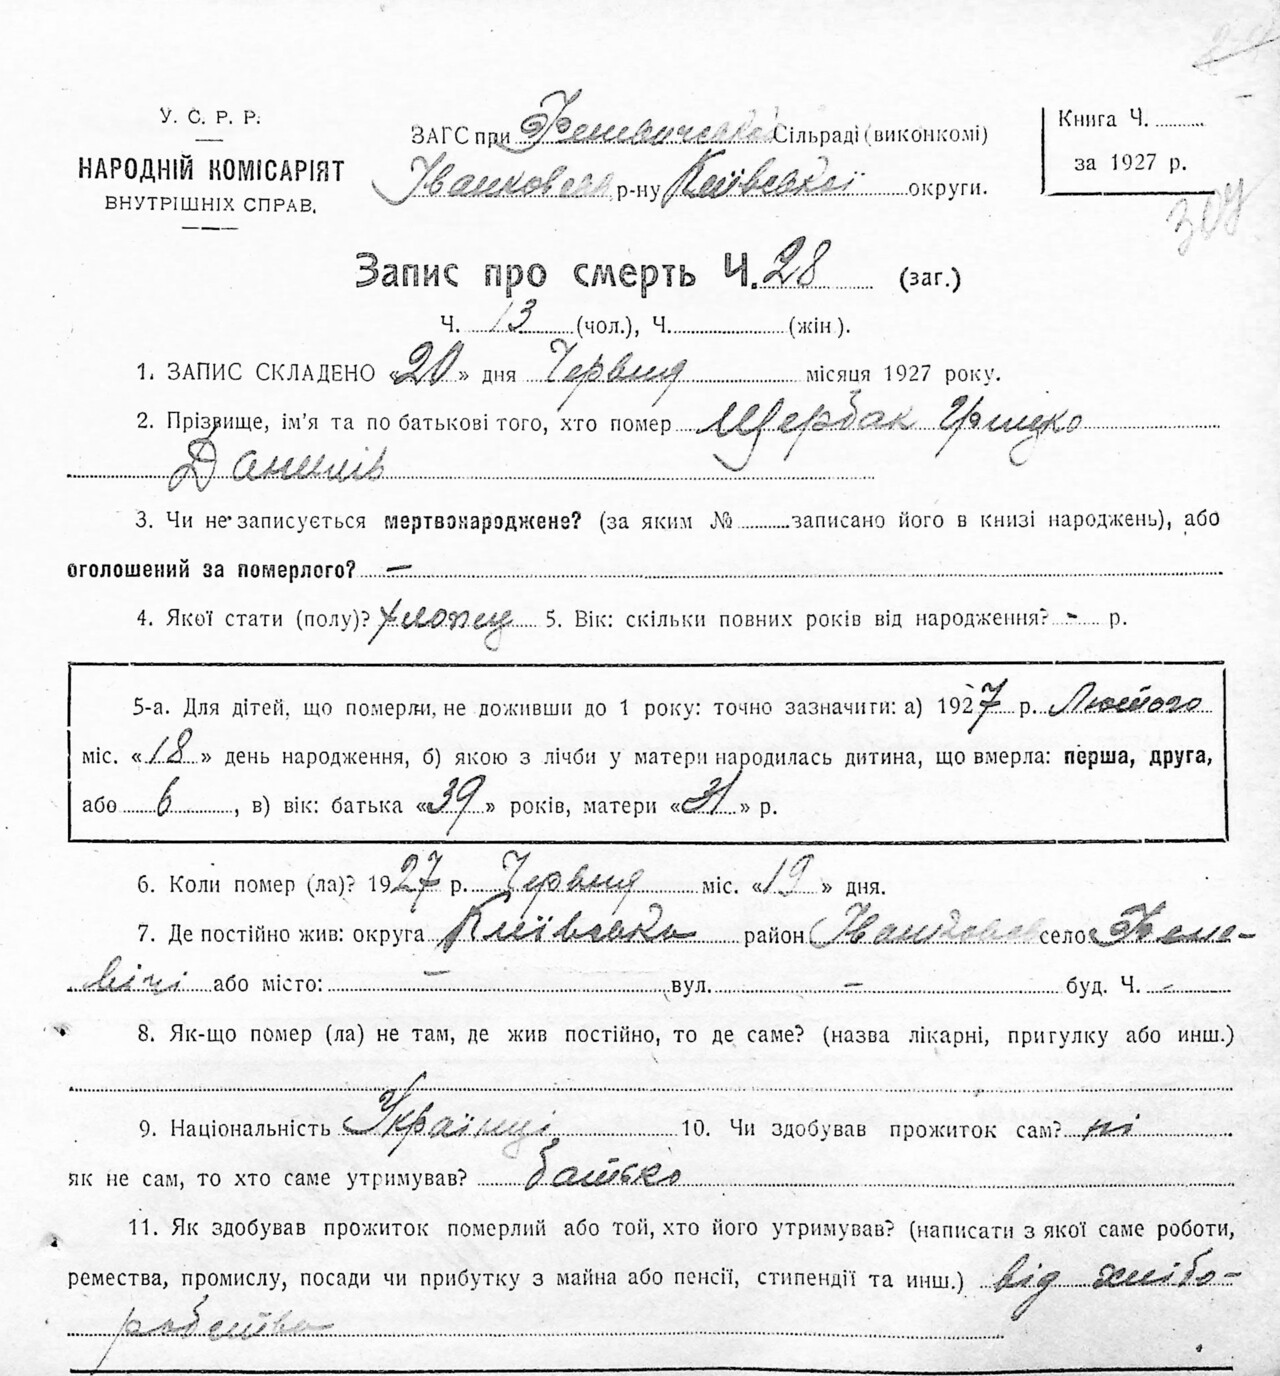 У. С. Р. Р.
НАРОДНІЙ КОМІСАРІЯТ
ВНУТРІШНІХ СПРАВ.
ЗАГС при Сільраді (виконкомі)
Іванковськ р-ну Київської округи.
Книга Ч.
за 1927 р.
307
Запис про смерть Ч. 28 (заг.)
Ч. 13 (чол.), Ч. (жін).
1. ЗАПИС СКЛАДЕНО «20» дня Червця місяця 1927 року.
2. Прізвище, ім'я та по батькові того, хто помер Щербак Грицко
Данилів
3. Чи не записується мертвонароджене? (за яким № записано його в книзі народжень), або
оголошений за померлого? —
4. Якої стати (полу)? хлопец 5. Вік: скільки повних років від народження? - р.
5-а. Для дітей, що померли, не доживши до 1 року: точно зазначити: а) 1927 р. Лютого
міс. «18» день народження, б) якою з лічби у матери народилась дитина, що вмерла: перша, друга,
або 6, в) вік: батька «39» років, матери «31» р.
6. Коли помер (ла)? 1927 р. Червця міс. «19» дня.
7. Де постійно жив: округа Київська район Іванковськ село Фене-
вічі або місто: — вул. — буд. Ч. -
8. Як-що помер (ла) не там, де жив постійно, то де саме? (назва лікарні, пригулку або инш.)
9. Національність Українці 10. Чи здобував прожиток сам? ні
як не сам, то хто саме утримував? батько
11. Як здобував прожиток померлий або той, хто його утримував? (написати з якої саме роботи,
ремества, промислу, посади чи прибутку з майна або пенсії, стипендії та инш.) від хлібо-
робства